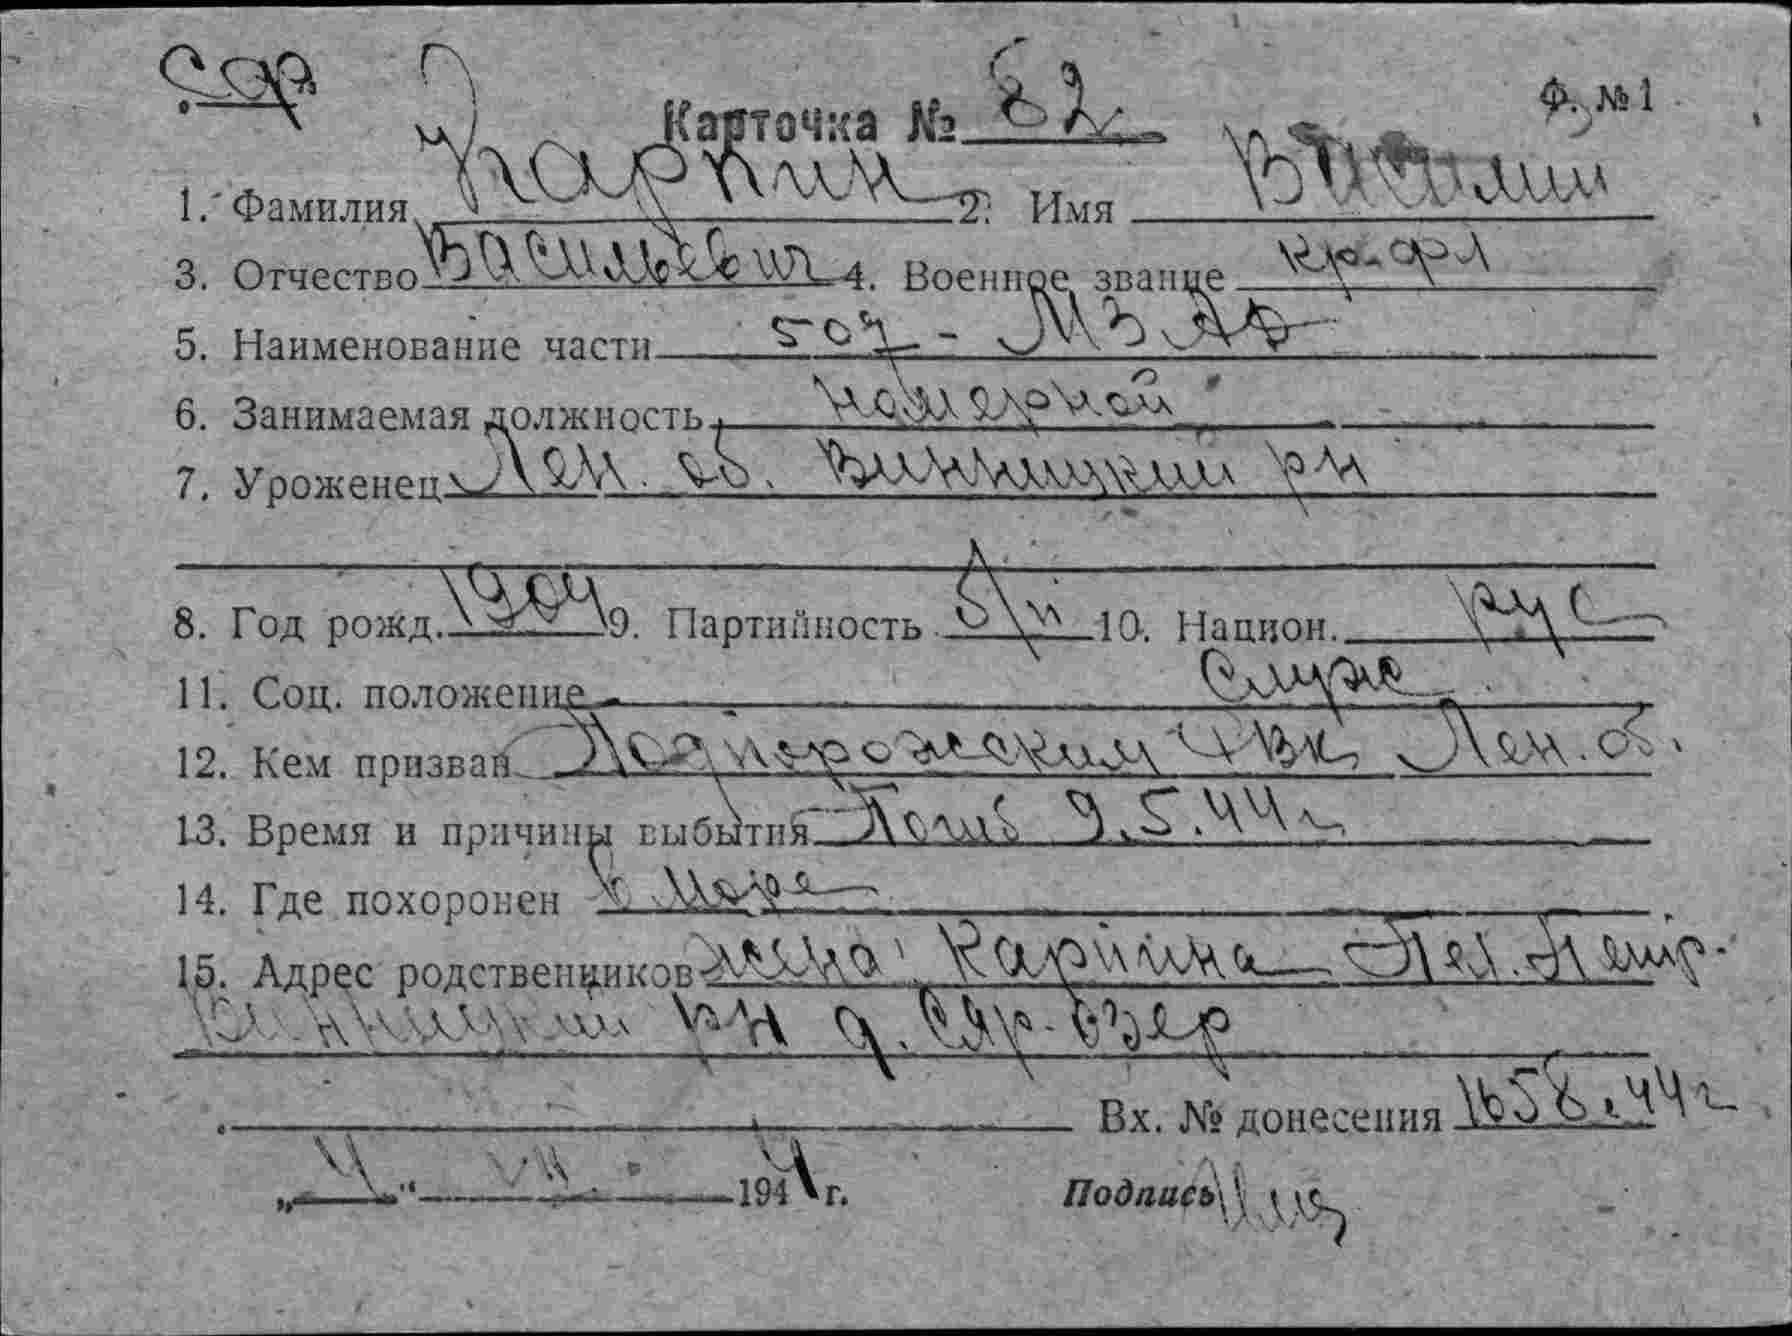 Ф. № 1
Карточка № 82
1. Фамилия Карпин 2. Имя Василий
3. Отчество Васильевич 4. Военное звание кр-фл
5. Наименование части 507 - МЗАД
6. Занимаемая должность номерной
7. Уроженец Лен. об. Винницкий рн
8. Год рожд. 1904 9. Партийность б/п 10. Национ. рус
11. Соц. положение служ
12. Кем призван Подпорожским РВК Лен. об.
13. Время и причины выбытия Погиб 9.5.44 г
14. Где похоронен в море
15. Адрес родственников жена Карпина Пел. Петр.
Винницкий рн д. Сяр-озер
Вх. № донесения 1658.44 г
„4“ VII 1944 г. Подпись